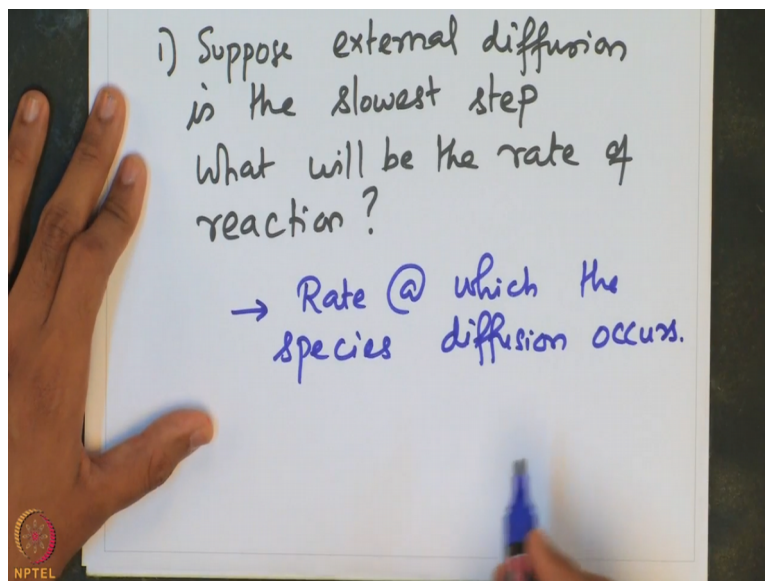 1) Suppose external diffusion
is the slowest step
What will be the rate of
reaction?
→ Rate @ which the
species diffusion occurs.
NPTEL